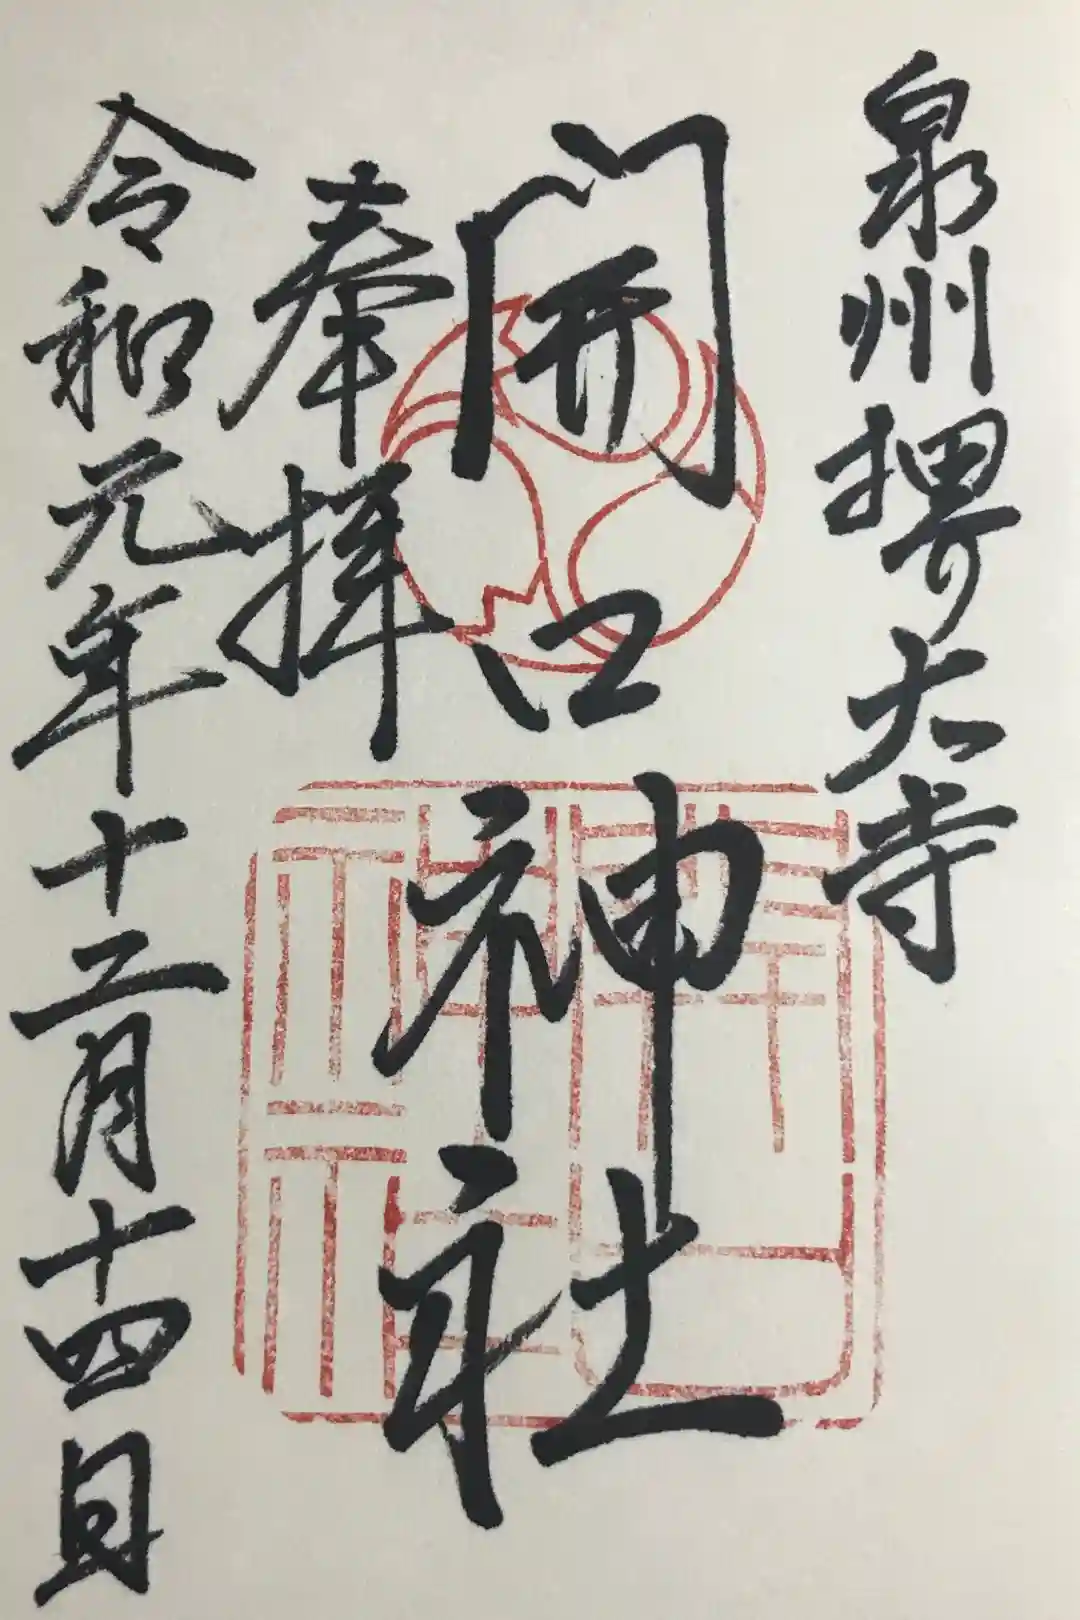 泉州堺大寺
開口神社
奉拝
令和元年十二月十四日
開口神社